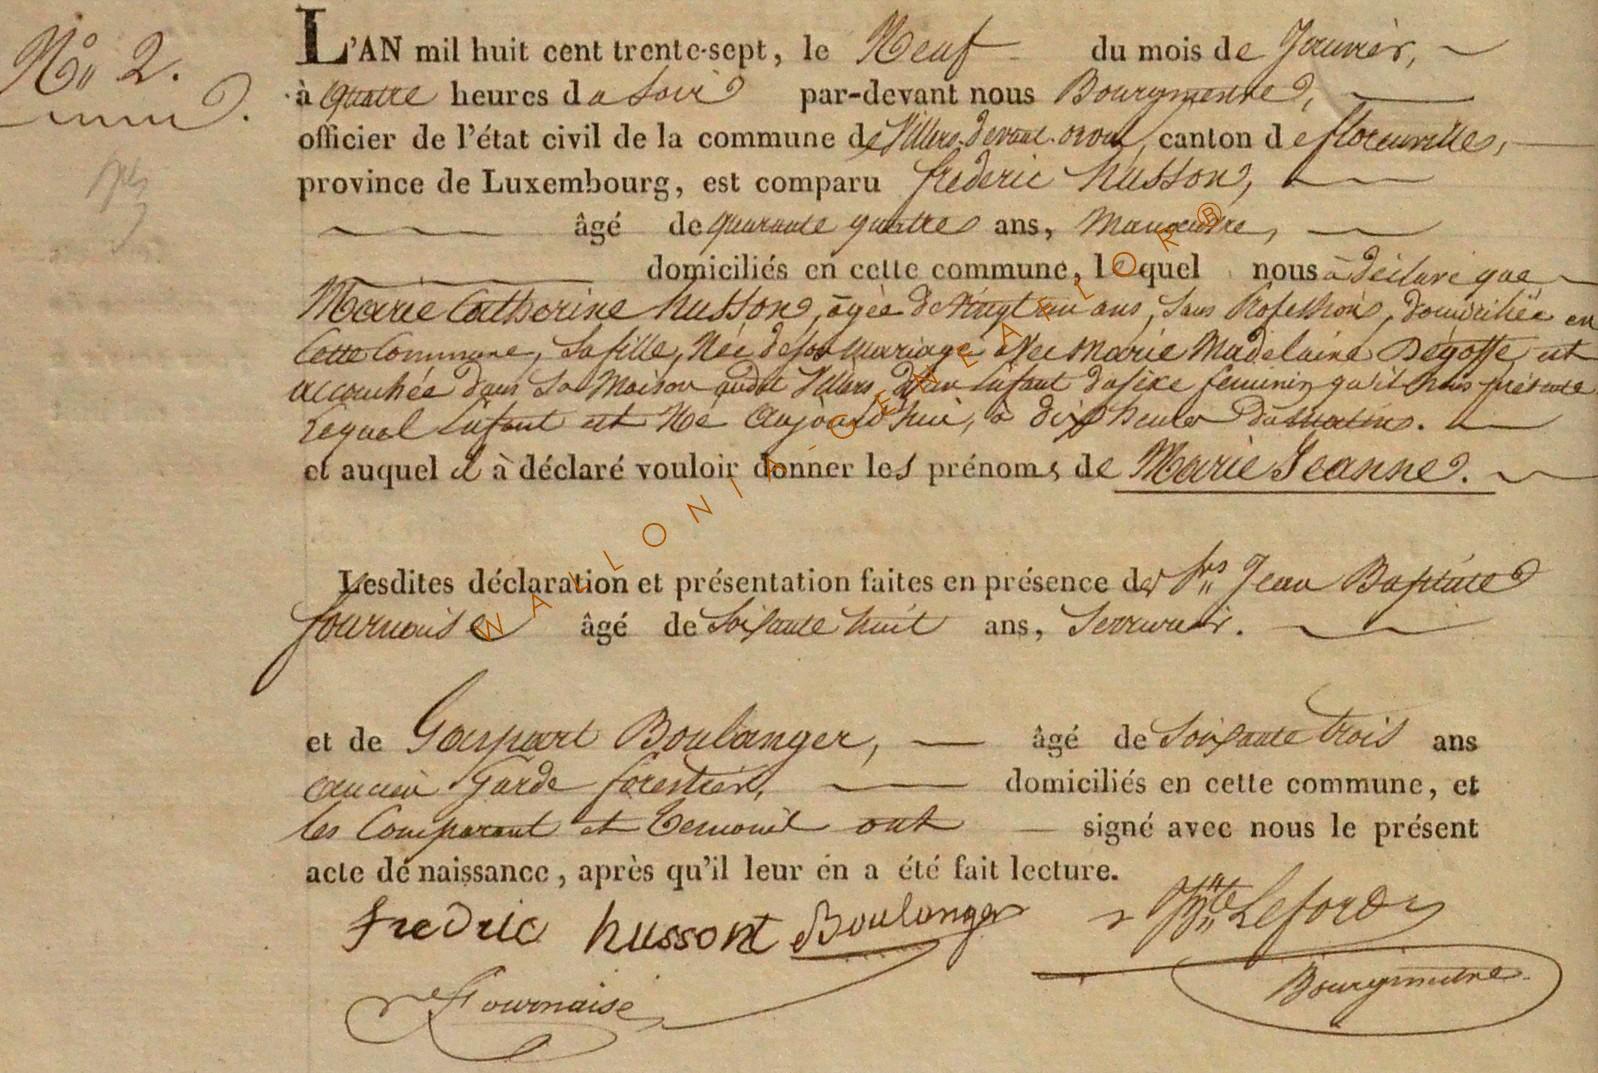 N° 2.
L'AN mil huit cent trente-sept, le Neuf du mois de Janvier,
à quatre heures du Soir par-devant nous Bourgmestre,
officier de l'état civil de la commune de Villers-devant-orval, canton de florenville,
province de Luxembourg, est comparu frederic husson,
âgé de quarante quatre ans, Manœuvre,
domiciliés en cette commune, lequel nous à déclaré que
Marie Catherine husson, agée de vingt un ans, sans Profession, domiciliée en
Cette Commune, sa fille, Née de son mariage avec Marie Madelaine Degoffe est
accouchée dans sa Maison audit Villers, d'un Enfant du sexe feminin qu'il nous présente
Lequel Enfant est Né aujourd'hui, à dix heures du matin.
et auquel il à déclaré vouloir donner les prénoms de Marie Jeanne.
Lesdites déclaration et présentation faites en présence des Srs Jean Baptiste
fournaise âgé de Soixante huit ans, Serrurier.
et de Gaspart Boulanger, âgé de Soixante trois ans
ancien Garde forestier, domiciliés en cette commune, et
les Comparant et temoins ont signé avec nous le présent
acte de naissance, après qu'il leur en a été fait lecture.
fredric hussont Boulanger Bte Leford
Fournaise Bourgmestre
WALLONIA-GENEALOR®